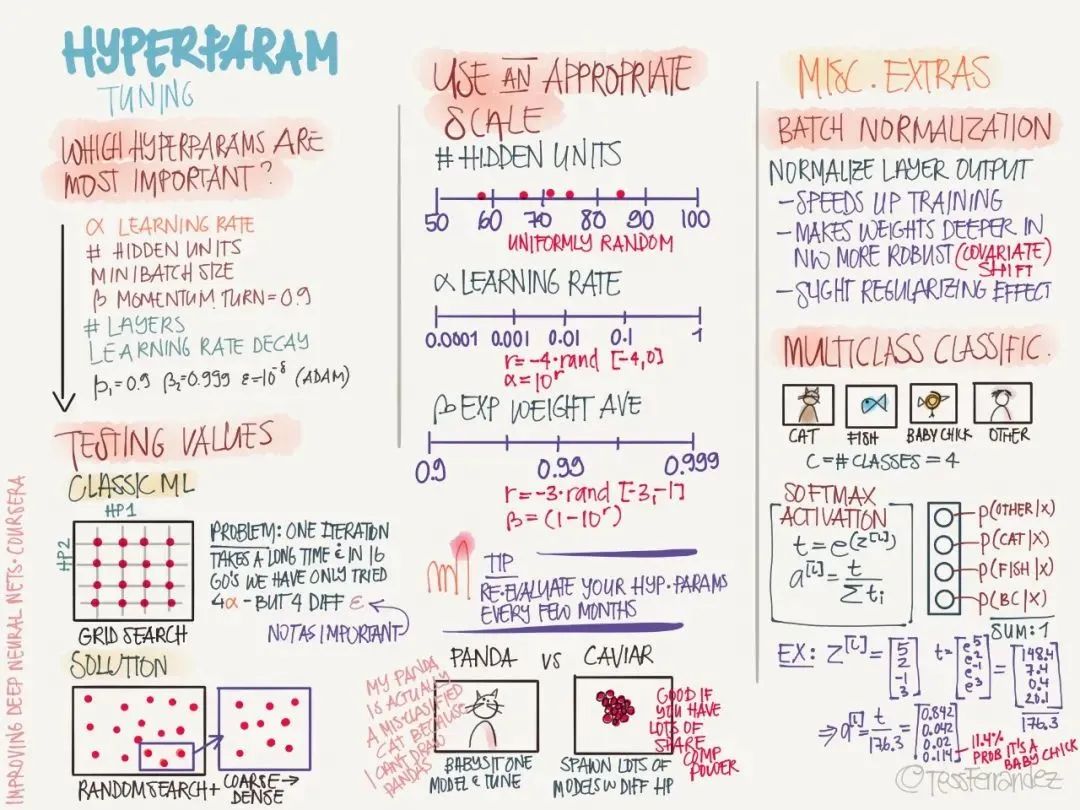 HYPERPARAM
TUNING
WHICH HYPERPARAMS ARE
MOST IMPORTANT?
α LEARNING RATE
# HIDDEN UNITS
MINIBATCH SIZE
β MOMENTUM TURN=0.9
# LAYERS
LEARNING RATE DECAY
β₁=0.9 β₂=0.999 ε=10⁻⁸ (ADAM)
TESTING VALUES
CLASSIC ML
HP1
HP2
PROBLEM: ONE ITERATION
TAKES A LONG TIME & IN 16
GO'S WE HAVE ONLY TRIED
4α - BUT 4 DIFF ε
NOT AS IMPORTANT
GRID SEARCH
SOLUTION
RANDOM SEARCH + COARSE →
DENSE
IMPROVING DEEP NEURAL NETS · COURSERA
USE AN APPROPRIATE
SCALE
# HIDDEN UNITS
50 60 70 80 90 100
UNIFORMLY RANDOM
α LEARNING RATE
0.0001 0.001 0.01 0.1 1
r=-4·rand [-4,0]
α=10^r
β EXP WEIGHT AVE
0.9 0.99 0.999
r=-3·rand [-3,-1]
β=(1-10^r)
TIP
RE-EVALUATE YOUR HYP.PARAMS
EVERY FEW MONTHS
PANDA VS CAVIAR
MY PANDA
IS ACTUALLY
A MISCLASSIFIED
CAT BECAUSE
I CANT DRAW
PANDAS
GOOD IF
YOU HAVE
LOTS OF
SHARE
COMP
POWER
BABYSIT ONE
MODEL & TUNE
SPAWN LOTS OF
MODELS W DIFF HP
MISC. EXTRAS
BATCH NORMALIZATION
NORMALIZE LAYER OUTPUT
- SPEEDS UP TRAINING
- MAKES WEIGHTS DEEPER IN
NW MORE ROBUST (COVARIATE)
SHIFT
- SLIGHT REGULARIZING EFFECT
MULTICLASS CLASSIFIC.
CAT FISH BABY CHICK OTHER
C=# CLASSES = 4
SOFTMAX
ACTIVATION
t=e^(z^[L])
a^[L]=t/Σti
P(OTHER|X)
P(CAT|X)
P(FISH|X)
P(BC|X)
SUM: 1
EX: Z^[L]=[5 2 -1 3] t=[e^5 e^2 e^-1 e^3]=[148.4 7.4 0.4 20.1]
176.3
⇒ a^[L] = t/176.3 = [0.842 0.042 0.02 0.114]
11.4%
PROB IT'S A
BABY CHICK
@TessFerrandez